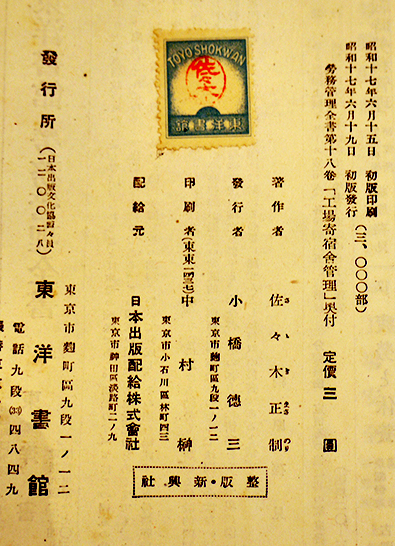 昭和十七年六月十五日　初版印刷
昭和十七年六月十九日　初版發行（三、〇〇〇部）
勞務管理全書第十八卷「工場寄宿舍管理」奥付　定價三圓
TOYO SHOKWAN
東洋書館
著作者　佐々木正制
さゝきまさのり
發行者　小橋德三
東京市麴町區九段一ノ一二
印刷者（東東一四三七）中村榊
東京市小石川區林町四三
配給元　日本出版配給株式會社
東京市神田區淡路町二ノ九
發行所（日本出版文化協會々員一二〇〇二八）東洋書館
東京市麴町區九段一ノ一二
電話九段㉝四八四九
整版・新興社